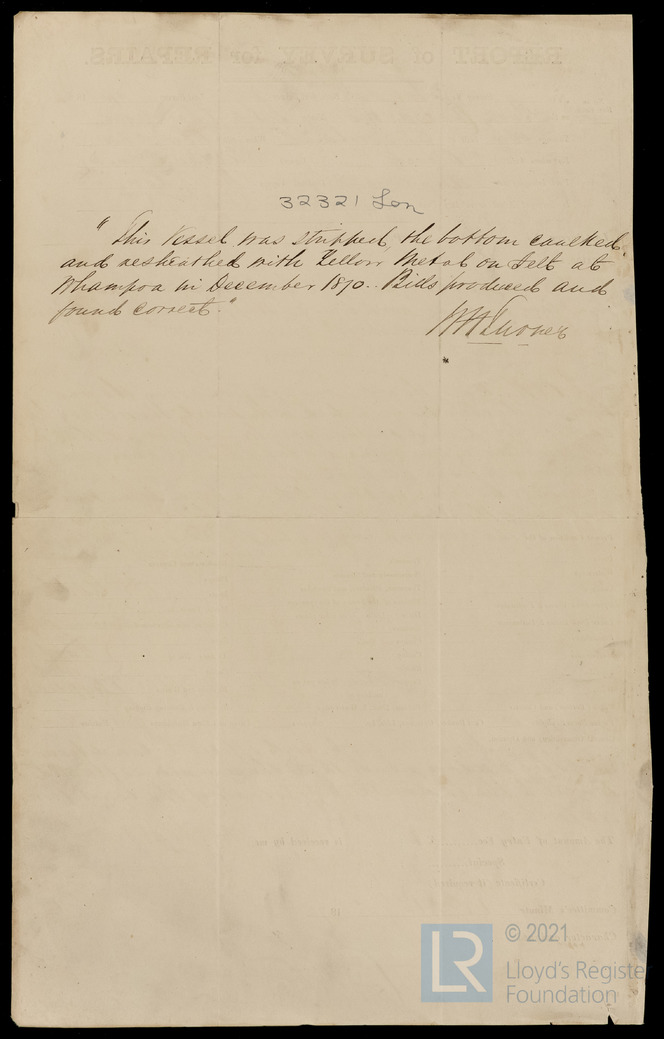 32321 Lon
" This Vessel was stripped, the bottom caulked
and resheathed with Yellow Metal on Felt at
Whampoa in December 1870. Bills produced and
found correct."
© 2021
LR
Lloyd's Register
Foundation